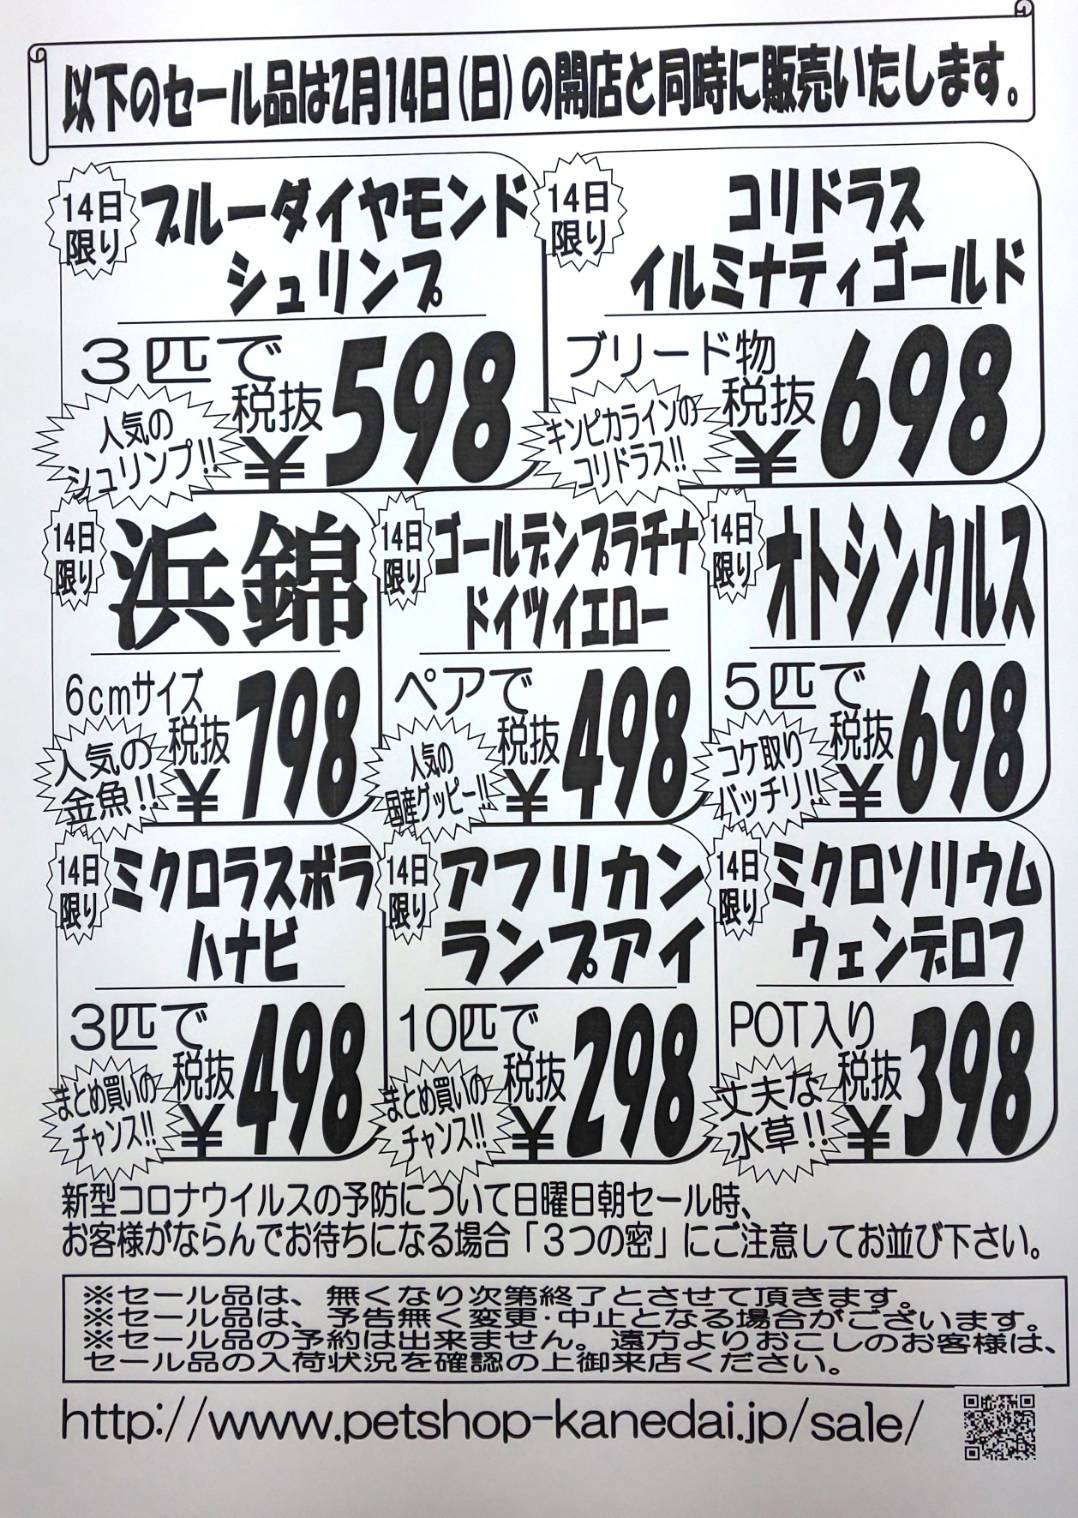 以下のセール品は2月14日(日)の開店と同時に販売いたします。
14日
限り
ブルーダイヤモンド
シュリンプ
3匹で
税抜
¥598
人気の
シュリンプ!!
14日
限り
コリドラス
イルミナティゴールド
ブリード物
税抜
¥698
キンピカラインの
コリドラス!!
14日
限り
浜錦
6cmサイズ
税抜
¥798
人気の
金魚!!
14日
限り
ゴールデンプラチナ
ドイツイエロー
ペアで
税抜
¥498
人気の
国産グッピー!!
14日
限り
オトシンクルス
5匹で
税抜
¥698
コケ取り
バッチリ!!
14日
限り
ミクロラスボラ
ハナビ
3匹で
税抜
¥498
まとめ買いの
チャンス!!
14日
限り
アフリカン
ランプアイ
10匹で
税抜
¥298
まとめ買いの
チャンス!!
14日
限り
ミクロソリウム
ウェンデロフ
POT入り
税抜
¥398
丈夫な
水草!!
新型コロナウイルスの予防について日曜日朝セール時、
お客様がならんでお待ちになる場合「3つの密」にご注意してお並び下さい。
※セール品は、無くなり次第終了とさせて頂きます。
※セール品は、予告無く変更・中止となる場合がございます。
※セール品の予約は出来ません。遠方よりおこしのお客様は、
セール品の入荷状況を確認の上御来店ください。
http://www.petshop-kanedai.jp/sale/